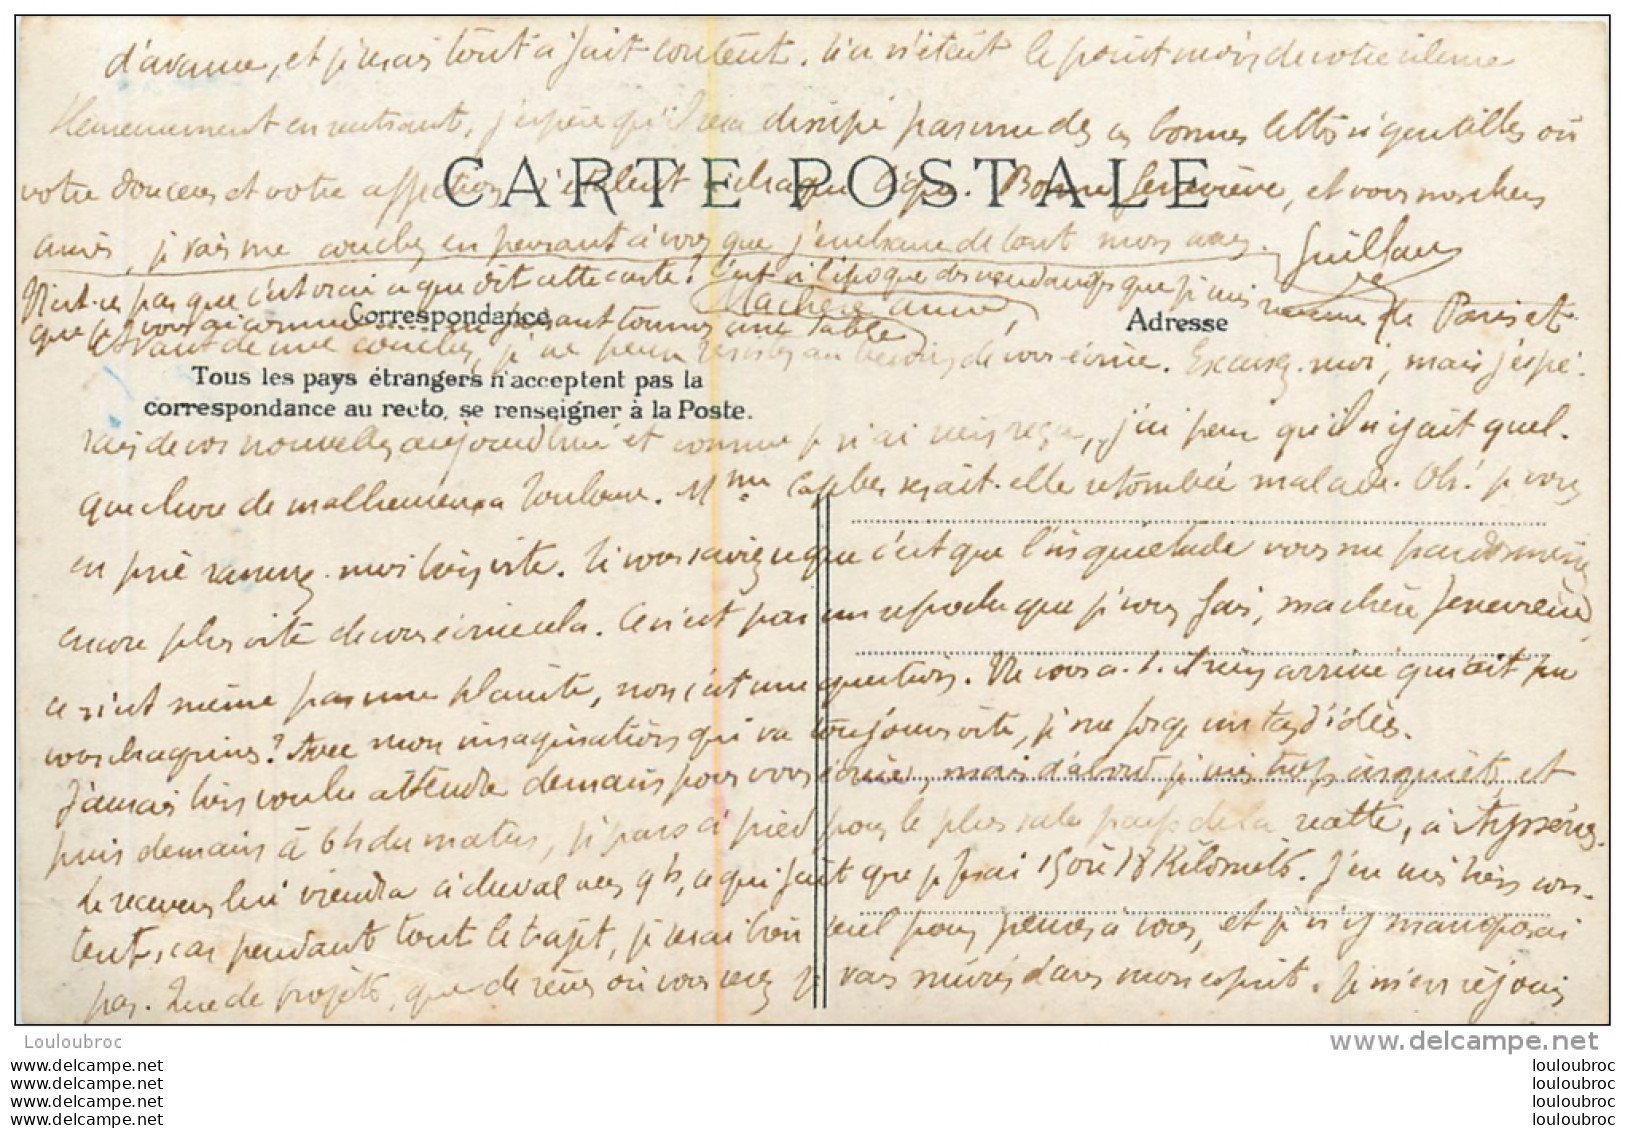 d'avance, et je serais tout à fait content, si ce n'était le point noir de votre silence
Heureusement en rentrant, j'espère qu'il sera dissipé par une de ces bonnes lettres si gentilles où
votre douceur et votre affection s'étalent à chaque ligne. Bonne Geneviève, et vous mes chers
amis, je vais me coucher en pensant à vous que j'embrasse de tout mon cœur. Guillaume
CARTE POSTALE
N'est-ce pas que c'est vrai ce que dit cette carte? C'est à l'époque des vendanges que je suis revenu de Paris et
que je vous ai connue en faisant tourner une table
Correspondance
Adresse
Ma chère amie,
Avant de me coucher, je ne peux résister au besoin de vous écrire. Excusez-moi, mais j'espé-
Tous les pays étrangers n'acceptent pas la
correspondance au recto, se renseigner à la Poste.
rais de vos nouvelles aujourd'hui et comme je n'ai rien reçu, j'ai peur qu'il n'y ait quel-
que chose de malheureux à Toulouse. Mme serait-elle retombée malade. Oh! je vous
en prie rassurez-moi bien vite. Si vous saviez ce que c'est que l'inquiétude vous me pardonneriez
encore plus vite de vous écrire cela. Ce n'est pas un reproche que je vous fais, ma chère Geneviève,
ce n'est même pas une plainte, non c'est une question. Ne vous a-t-il rien arrivé qui ait pu
vous chagriner? Avec mon imagination qui va toujours vite, je me forge un tas d'idées.
J'aurais bien voulu attendre demain pour vous écrire, mais d'abord je suis trop inquiet, et
puis demain à 6h du matin, je pars à pied pour le plus sale pays de la recette, à Ayssènes.
Le receveur lui viendra à cheval vers 9h, ce qui fait que je ferai 15 ou 18 Kilomèts. J'en suis bien con-
tent, car pendant tout le trajet, je serai bien seul pour penser à vous, et je n'y manquerai
pas. Que de projets, que de rêves où vous serez je vais mûrir dans mon esprit. Je m'en réjouis
Louloubroc
www.delcampe.net
louloubroc
louloubroc
louloubroc
louloubroc
louloubroc
louloubroc
louloubroc
louloubroc